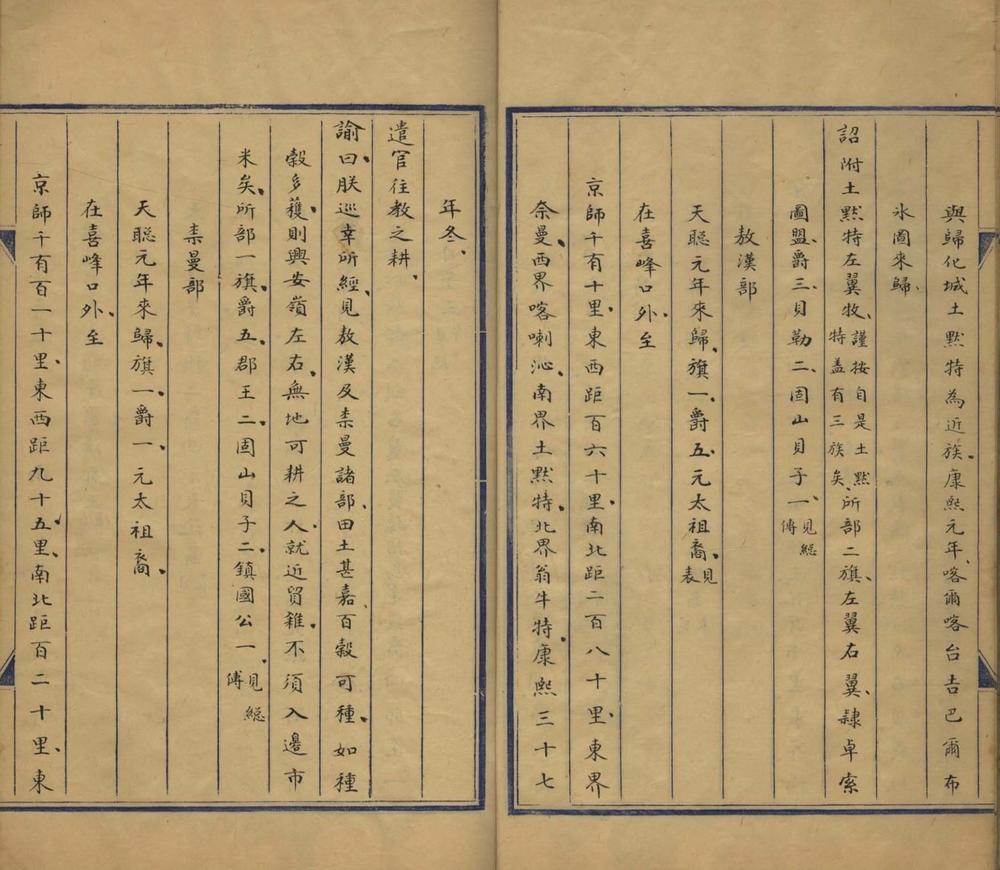 與歸化城土黙特為近族康熙元年喀爾喀台吉巴爾布
氷圖來歸
詔附土黙特左翼牧謹按自是土黙特盖有三族矣所部二旗左翼右翼隷卓索
圖盟爵三貝勒二固山貝子一見總傳
敖漢部
天聰元年來歸旗一爵五元太祖裔見表
在喜峰口外至
京師千有十里東西距百六十里南北距二百八十里東界
奈曼西界喀喇沁南界土黙特北界翁牛特康熙三十七
年冬
遣官往教之耕
諭曰朕巡幸所經見敖漢及柰曼諸部田土甚嘉百穀可種如種
穀多穫則興安嶺左右無地可耕之人就近貿糴不須入邊市
米矣所部一旗爵五郡王二固山貝子二鎮國公一見總傳
柰曼部
天聰元年來歸旗一爵一元太祖裔
在喜峰口外至
京師千有百一十里東西距九十五里南北距百二十里東